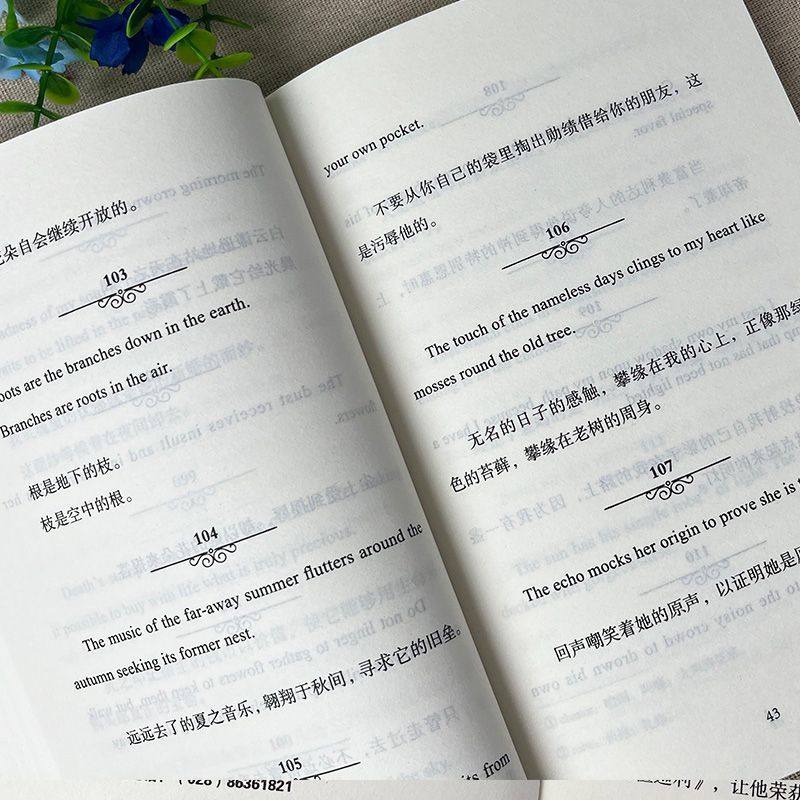 朵自会继续开放的。
103
oots are the branches down in the earth.
Branches are roots in the air.
根是地下的枝。
枝是空中的根。
104
The music of the far-away summer flutters around the
autumn seeking its former nest.
远远去了的夏之音乐，翱翔于秋间，寻求它的旧垒。
105
its from
your own pocket.
不要从你自己的袋里掏出勋绩借给你的朋友，这
是污辱他的。
106
The touch of the nameless days clings to my heart like
mosses round the old tree.
无名的日子的感触，攀缘在我的心上，正像那绿
色的苔藓，攀缘在老树的周身。
107
The echo mocks her origin to prove she is
回声嘲笑着她的原声，以证明她是
43
（028）86361821
》，让他荣获